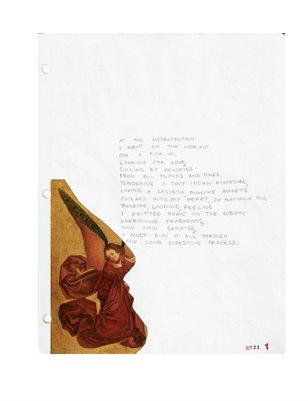 AT THE METROPOLITAN
I WENT ON THE LOOKOUT
FOR A PICK-UP,
LOOKING FOR LOVE,
SIDLING BY BEAUTIES
FROM ALL PLACES AND TIMES,
TENDERING A TINY INDIAN MINIATURE,
LIVING A SASSETA, PULLING MONET'S
POPLARS INTO MY HEART, DE KOONING TOO
THINKING, LOOKING, FEELING
I DRIFTED HOME ON THE SUBWAY
CHERISHING FRAGMENTS,
AND NOW SATIATED,
I MUST RUN IT ALL THROUGH
THE LONG DIGESTIVE PROCESS.
OCT 21